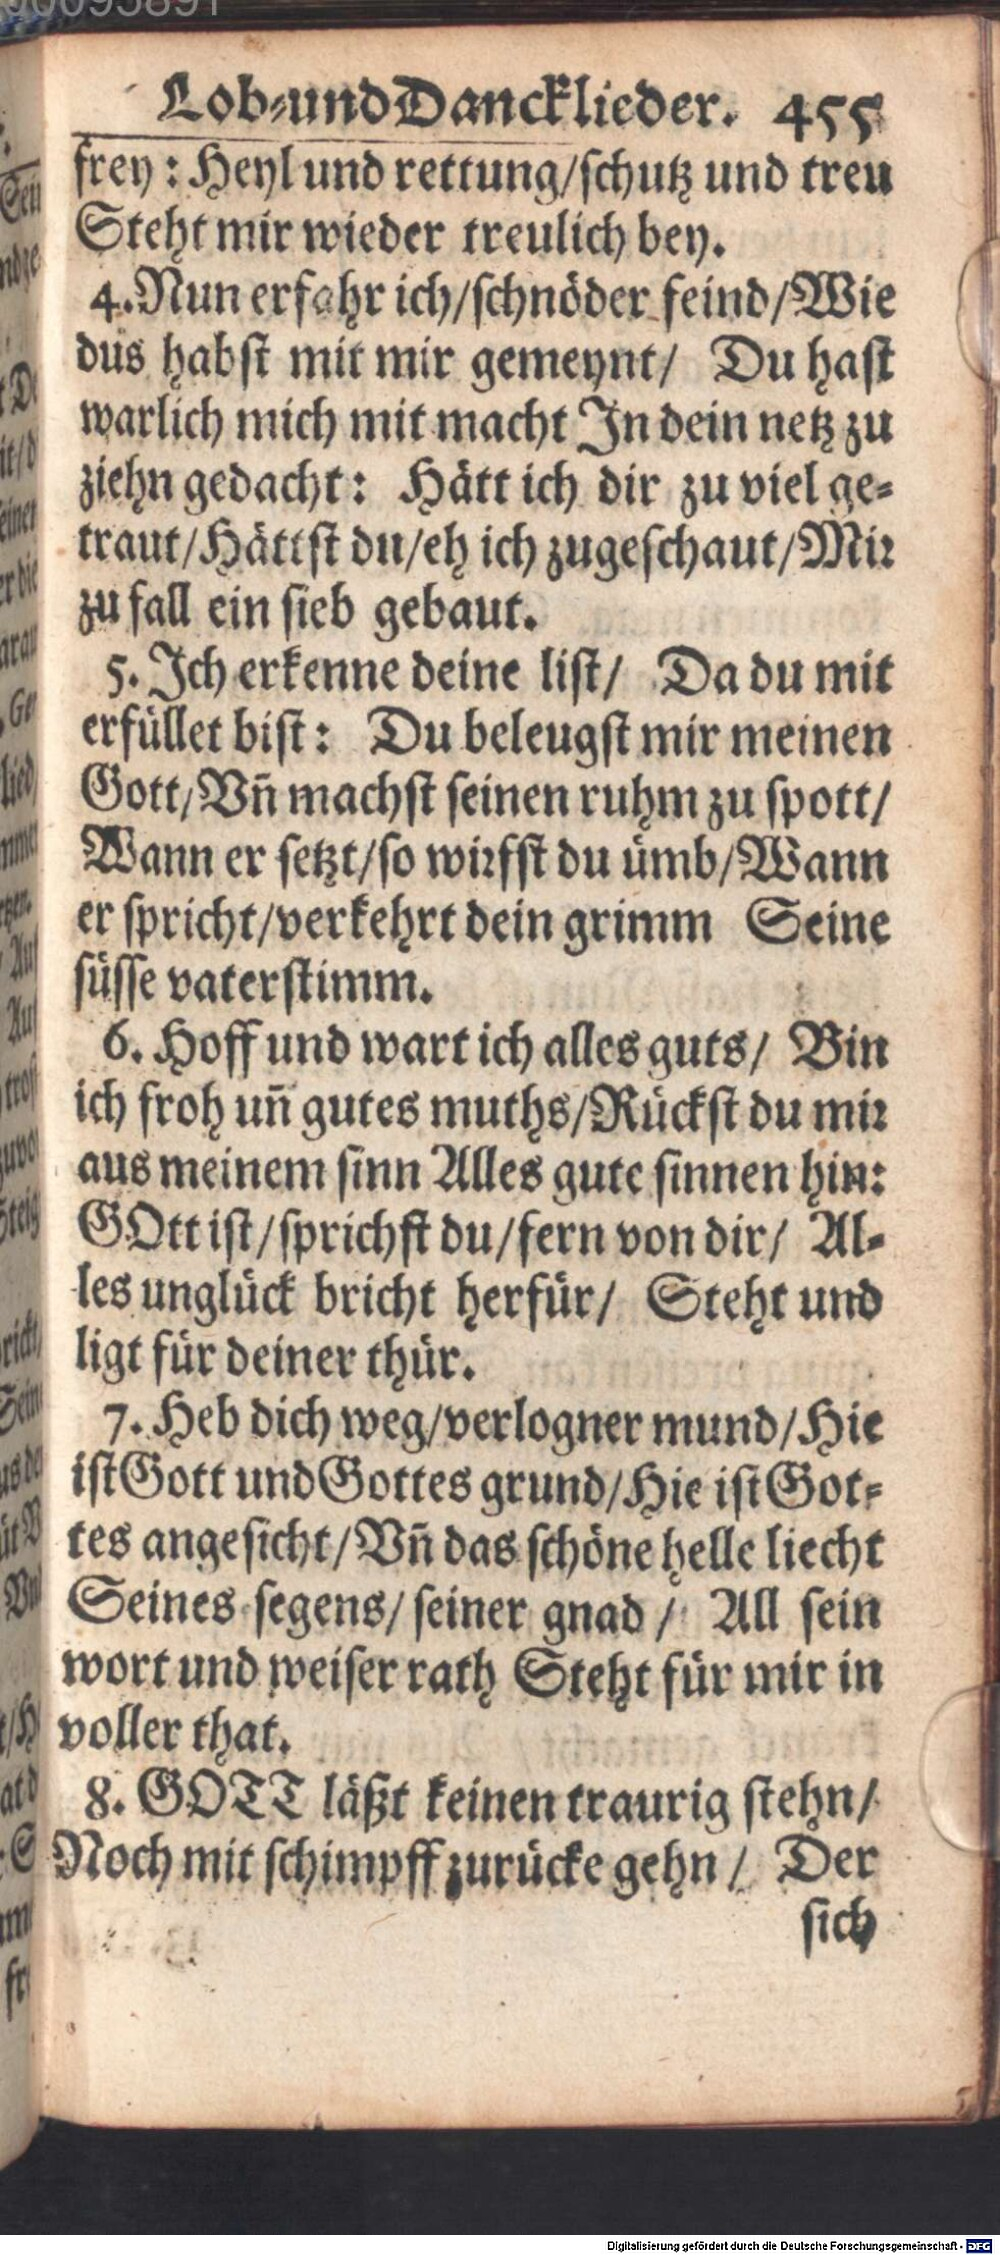 Lob-und Dancklieder. 455
frey: Heyl und rettung/schutz und treu
Steht mir wieder treulich bey.
4. Nun erfahr ich/schnöder feind/Wie
dus habst mit mir gemeynt/ Du hast
warlich mich mit macht In dein netz zu
ziehn gedacht: Hätt ich dir zu viel ge-
traut/Hättst du/eh ich zugeschaut/Mir
zu fall ein sieb gebaut.
5. Ich erkenne deine list/ Da du mit
erfüllet bist: Du beleugst mir meinen
Gott/Vñ machst seinen ruhm zu spott/
Wann er setzt/so wirfst du ümb/Wann
er spricht/verkehrt dein grimm Seine
süsse vaterstimm.
6. Hoff und wart ich alles guts/ Bin
ich froh uñ gutes muths/Rückst du mir
aus meinem sinn Alles gute sinnen hin:
GOtt ist/sprichst du/fern von dir/ Al-
les unglück bricht herfür/ Steht und
ligt für deiner thür.
7. Heb dich weg/verlogner mund/Hie
ist Gott und Gottes grund/Hie ist Got-
tes angesicht/Vñ das schöne helle liecht
Seines segens/seiner gnad/ All sein
wort und weiser rath Steht für mir in
voller that.
8. GOTT läßt keinen traurig stehn/
Noch mit schimpff zurücke gehn/ Der
sich
Digitalisierung gefördert durch die Deutsche Forschungsgemeinschaft - DFG